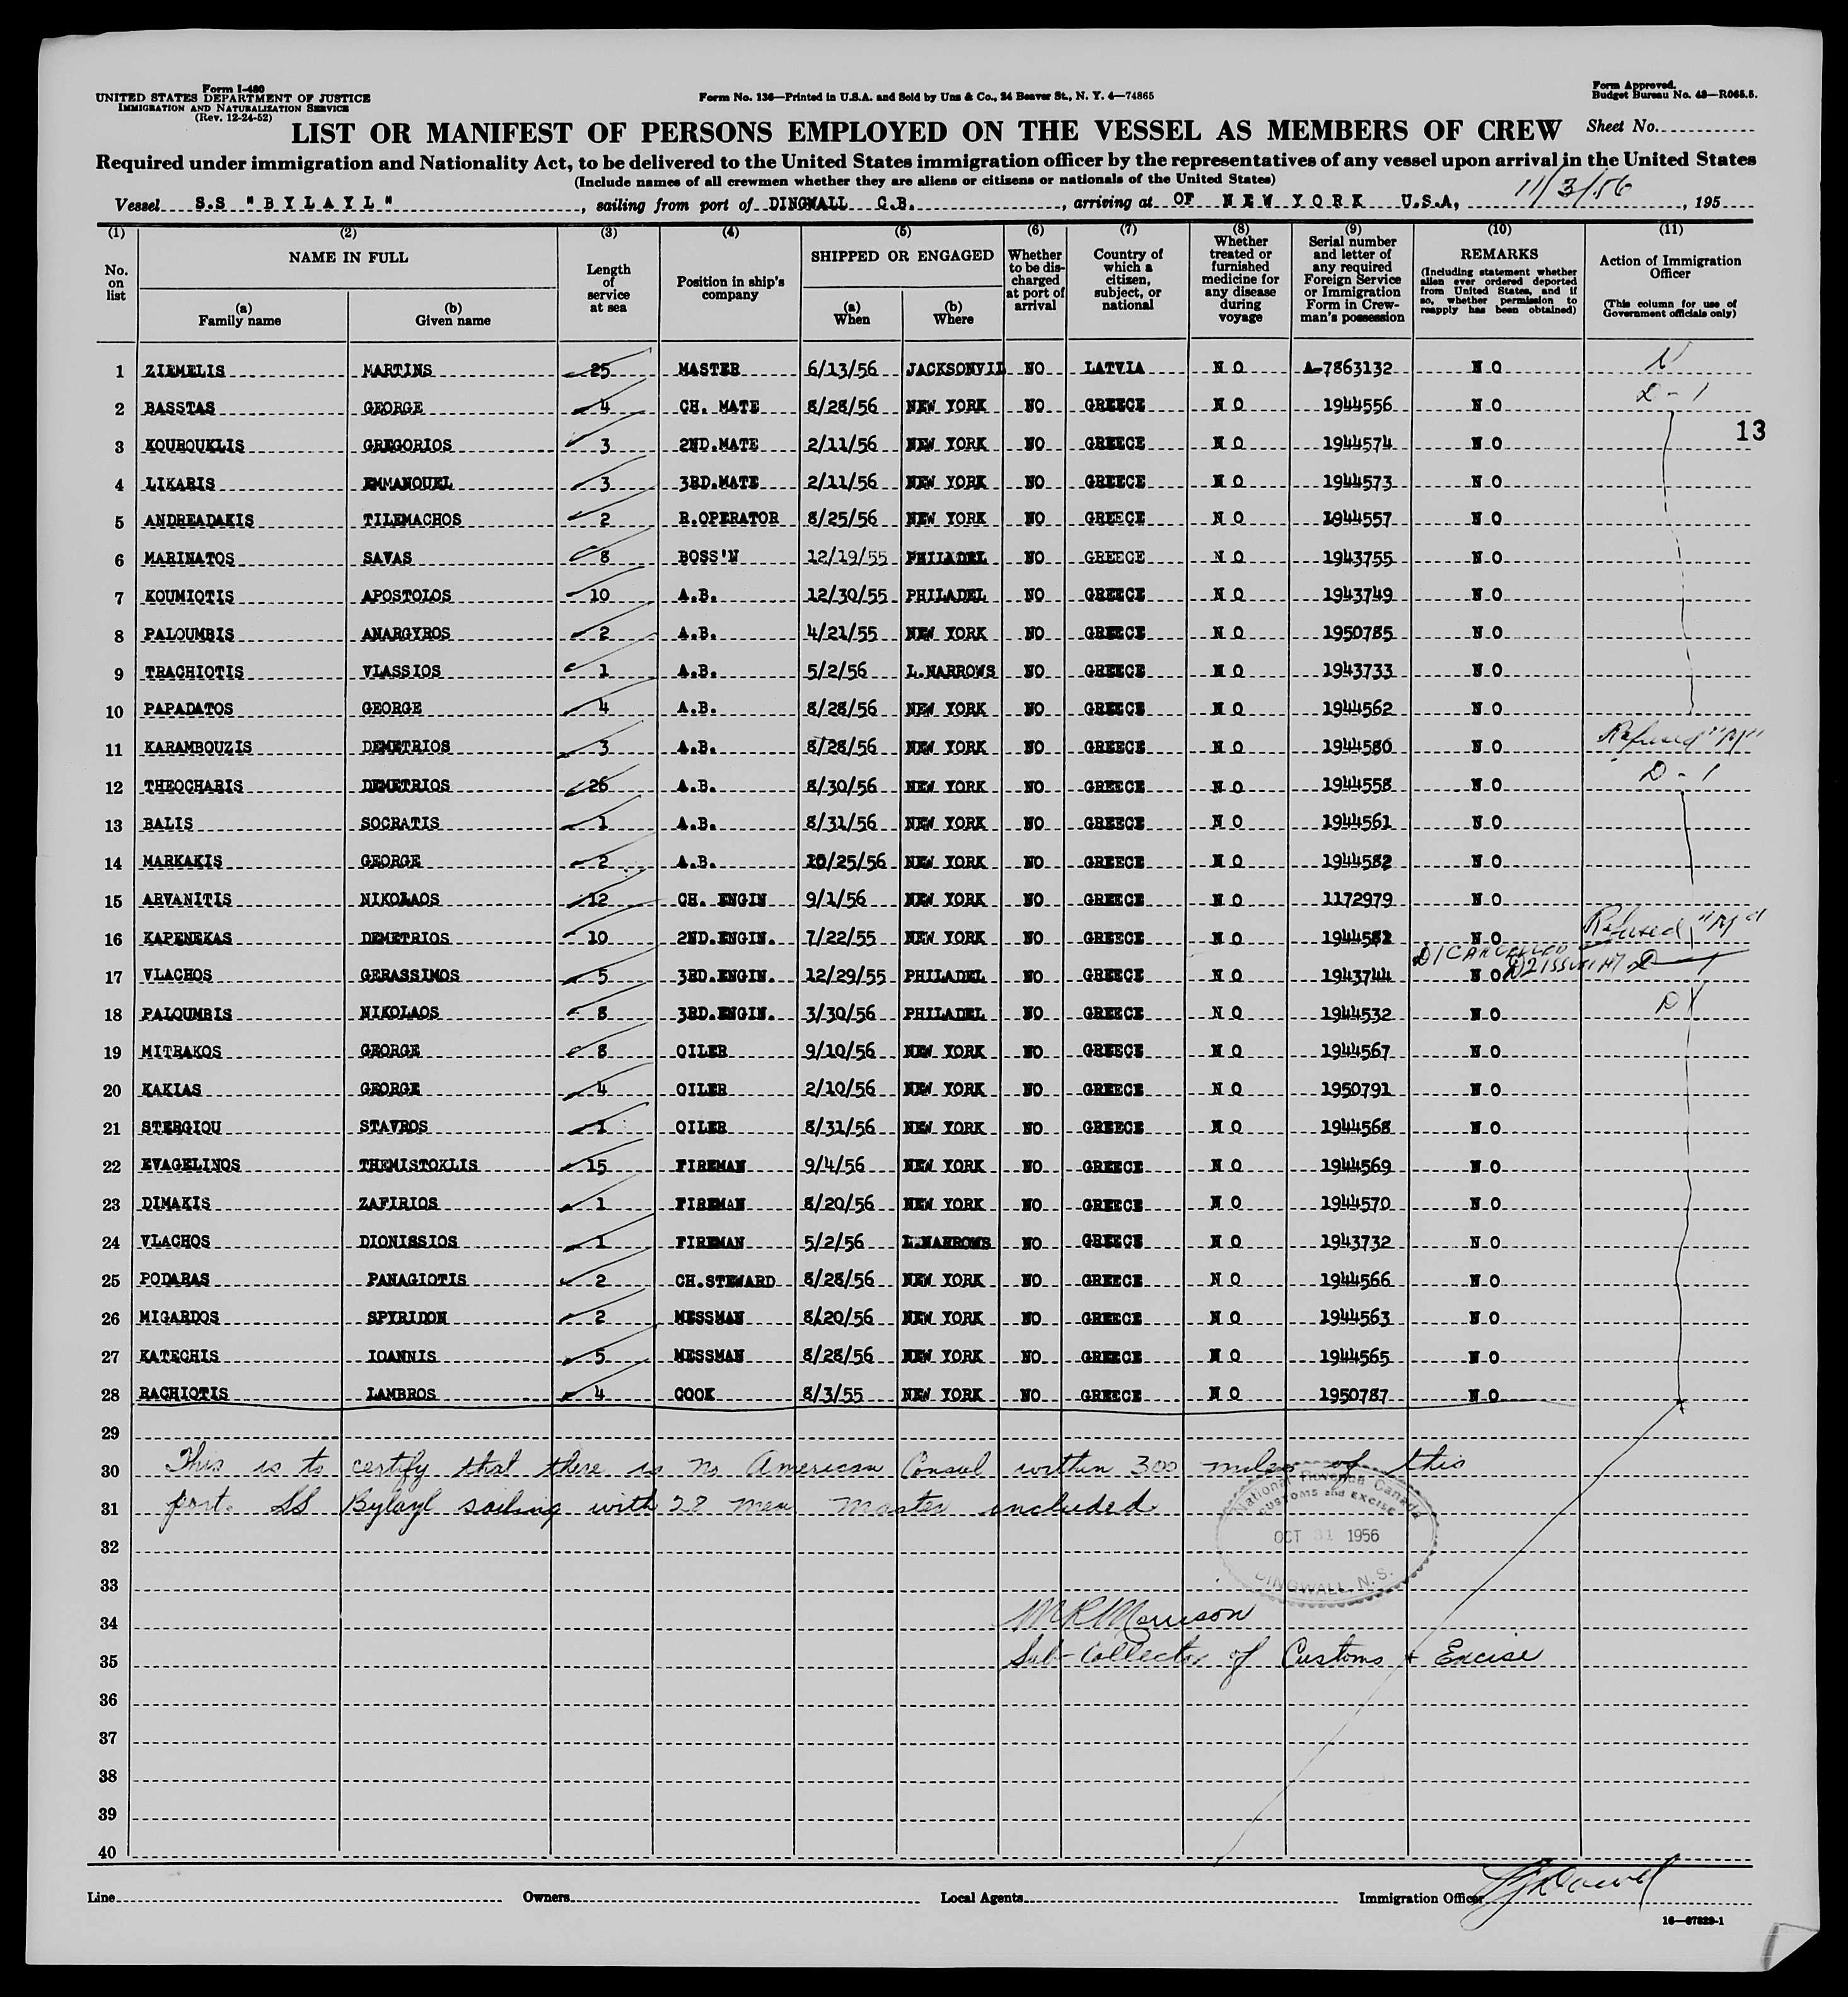 Form I-480
UNITED STATES DEPARTMENT OF JUSTICE
IMMIGRATION AND NATURALIZATION SERVICE
(Rev. 12-24-52)
Form No. 136—Printed in U.S.A. and Sold by Unz & Co., 24 Beaver St., N. Y. 4—74865
Form Approved.
Budget Bureau No. 43—R065.5.
LIST OR MANIFEST OF PERSONS EMPLOYED ON THE VESSEL AS MEMBERS OF CREW Sheet No.
Required under immigration and Nationality Act, to be delivered to the United States immigration officer by the representatives of any vessel upon arrival in the United States
(Include names of all crewmen whether they are aliens or citizens or nationals of the United States)
Vessel S.S "B Y L A Y L", sailing from port of DINGWALL C.B., arriving at OF N E W Y O R K U.S.A, 11/3/56, 195
(1) (2) (3) (4) (5) (6) (7) (8) (9) (10) (11)
No. on list
NAME IN FULL
(a) Family name
(b) Given name
Length of service at sea
Position in ship's company
SHIPPED OR ENGAGED
(a) When
(b) Where
Whether to be discharged at port of arrival
Country of which a citizen, subject, or national
Whether treated or furnished medicine for any disease during voyage
Serial number and letter of any required Foreign Service or Immigration Form in Crewman's possession
REMARKS
(Including statement whether alien ever ordered deported from United States, and if so, whether permission to reapply has been obtained)
Action of Immigration Officer
(This column for use of Government officials only)
1 ZIEMELIS MARTINS 25 MASTER 6/13/56 JACKSONVIL NO LATVIA N O A-7863132 N O
2 BASSTAS GEORGE 4 CH. MATE 8/28/56 NEW YORK NO GREECE N O 1944556 N O D-1
13
3 KOUROUKLIS GREGORIOS 3 2ND.MATE 2/11/56 NEW YORK NO GREECE N O 1944574 N O
4 LIKARIS EMMANOUEL 3 3RD.MATE 2/11/56 NEW YORK NO GREECE N O 1944573 N O
5 ANDREADAKIS TILEMACHOS 2 R.OPERATOR 8/25/56 NEW YORK NO GREECE N O 1944557 N O
6 MARINATOS SAVAS 8 BOSS'N 12/19/55 PHILADEL NO GREECE N O 1943755 N O
7 KOUMIOTIS APOSTOLOS 10 A.B. 12/30/55 PHILADEL NO GREECE N O 1943749 N O
8 PALOUMBIS ANARGYROS 2 A.B. 4/21/55 NEW YORK NO GREECE N O 1950785 N O
9 TRACHIOTIS VLASSIOS 1 A.B. 5/2/56 L.NARROWS NO GREECE N O 1943733 N O
10 PAPADATOS GEORGE 4 A.B. 8/28/56 NEW YORK NO GREECE N O 1944562 N O
11 KARAMBOUZIS DEMETRIOS 3 A.B. 8/28/56 NEW YORK NO GREECE N O 1944580 N O Refused "M"
12 THEOCHARIS DEMETRIOS 26 A.B. 8/30/56 NEW YORK NO GREECE N O 1944558 N O D-1
13 BALIS SOCRATIS 1 A.B. 8/31/56 NEW YORK NO GREECE N O 1944561 N O
14 MARKAKIS GEORGE 2 A.B. 10/25/56 NEW YORK NO GREECE N O 1944582 N O
15 ARVANITIS NIKOLAOS 12 CH. ENGIN 9/1/56 NEW YORK NO GREECE N O 1172979 N O
16 KAPENEKAS DEMETRIOS 10 2ND.ENGIN. 7/22/55 NEW YORK NO GREECE N O 1944582 N O Refused "M"
D1 CANCELLED
17 VLACHOS GERASSIMOS 5 3RD.ENGIN. 12/29/55 PHILADEL NO GREECE N O 1943744 N O D2 ISSUED
18 PALOUMBIS NIKOLAOS 8 3RD.ENGIN. 3/30/56 PHILADEL NO GREECE N O 1944532 N O D1
19 MITRAKOS GEORGE 8 OILER 9/10/56 NEW YORK NO GREECE N O 1944567 N O
20 KAKIAS GEORGE 4 OILER 2/10/56 NEW YORK NO GREECE N O 1950791 N O
21 STERGIOU STAVROS 1 OILER 8/31/56 NEW YORK NO GREECE N O 1944568 N O
22 EVAGELINOS THEMISTOKLIS 15 FIREMAN 9/4/56 NEW YORK NO GREECE N O 1944569 N O
23 DIMAKIS ZAFIRIOS 1 FIREMAN 8/20/56 NEW YORK NO GREECE N O 1944570 N O
24 VLACHOS DIONISSIOS 1 FIREMAN 5/2/56 L.NARROWS NO GREECE N O 1943732 N O
25 PODARAS PANAGIOTIS 2 CH.STEWARD 8/28/56 NEW YORK NO GREECE N O 1944566 N O
26 MIGARDOS SPYRIDON 2 MESSMAN 8/20/56 NEW YORK NO GREECE N O 1944563 N O
27 KATECHIS IOANNIS 5 MESSMAN 8/28/56 NEW YORK NO GREECE N O 1944565 N O
28 RACHIOTIS LAMBROS 4 COOK 8/3/55 NEW YORK NO GREECE N O 1950787 N O
29
30 This is to certify that there is no American Consul within 300 miles of this
31 port. SS Bylayl sailing with 28 men master included
National Revenue Canada
CUSTOMS and EXCISE
OCT 31 1956
DINGWALL, N.S.
32
33
34 M R Morrison
35 Sub-Collector of Customs & Excise
36
37
38
39
40
Line Owners Local Agents Immigration Officer
16—67329-1